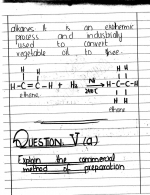 alkanes. It is an exothermic
process and industrially
used to convert
vegetable oil to
H H H H
H-C=C-H + H₂ Ni → H-C-C-H
200°C H H
ethene ethane
QUESTION: V (a)
Explain the commercial
method of preparation